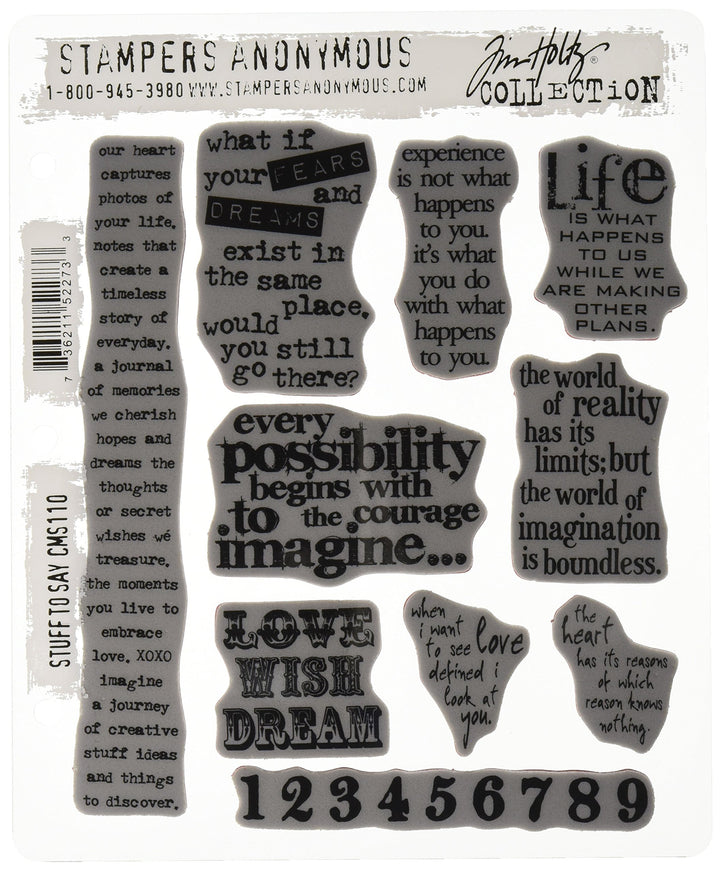 STAMPERS ANONYMOUS
1-800-945-3980 WWW.STAMPERSANONYMOUS.COM
Tim Holtz®
COLLECTiON
our heart
captures
photos of
your life.
notes that
create a
timeless
story of
everyday.
a journal
of memories
we cherish
hopes and
dreams the
thoughts
or secret
wishes we
treasure.
the moments
you live to
embrace
love. XOXO
imagine
a journey
of creative
stuff ideas
and things
to discover.
what if
your FEARS
and
DREAMS
exist in
the same
place.
would
you still
go there?
experience
is not what
happens
to you.
it's what
you do
with what
happens
to you.
Life
IS WHAT
HAPPENS
TO US
WHILE WE
ARE MAKING
OTHER
PLANS.
7 36211 52273 3
every
possibility
begins with
.to the courage
imagine...
the world
of reality
has its
limits; but
the world of
imagination
is boundless.
STUFF TO SAY CMS110
LOVE
WISH
DREAM
when
i want
to see love
defined i
look at
you.
the
heart
has its reasons
of which
reason knows
nothing.
1 2 3 4 5 6 7 8 9